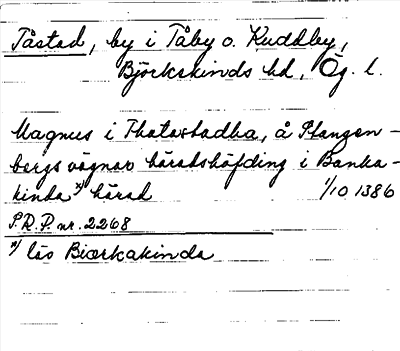 Tåstad, by i Tåby o. Kuddby,
Björkekinds hd, Ög. l.
Magnus i Thotastadha, å Stangen-
bergs vägnar häradshöfding i Banka-
kinda x) härad 1/10 1386
S.R.P. nr. 2268
x) läs Biærkakinda